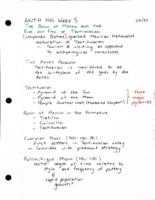 ANTH 140 WEEK 5
THE BASIN OF MEXICO AND THE
RISE AND FALL OF TEOTIHUACAN
Leopoldo Batres) opened Mexican Nationalist
restoration of Teotihuacan
Tourism & visiting as opposed
to archaeological correctness
THE AZTEC
Teotihuacan is considered to be
the birthplace of the gods by the
Aztecs
Teotihuacan
Pyramid of the Sun
Pyramid of the Moon
Temple Quetzalcoatl (Feathered Serpent)
Three
major
pyramids
Basin of Mexico in the Formative
Tlatilco
Cuicuilco
Teotihuacan
First settlers in Teotihuacan valley
Coincides with
Patlachique Phase
length of time relates to
style and frequency of pottery
rapid population
growth